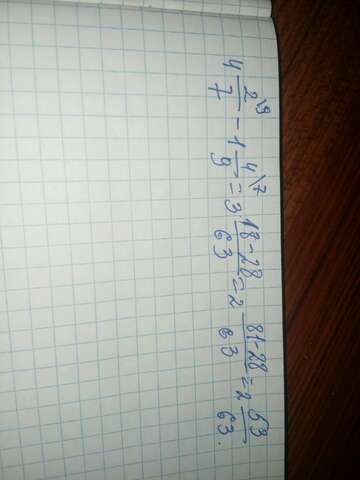 4 2\9/7 - 1 4\7/9 = 3 18-28/63 = 2 81-28/63 = 2 53/63.